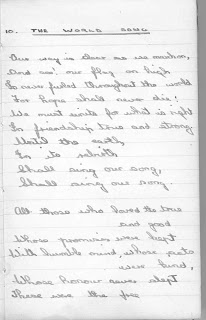 10. THE WORLD SONG
Our way is clear as we march on,
And see! our flag on high
Is never furled throughout the world
For hope shall never die!
We must unite for what is right
In friendship true and strong
Until the earth,
In its rebirth
Shall sing our song,
Shall sing our song.
All those who loved the true
and good
Whose promises were kept
With humble mind, whose acts
were kind,
Whose honour never slept
These were the free